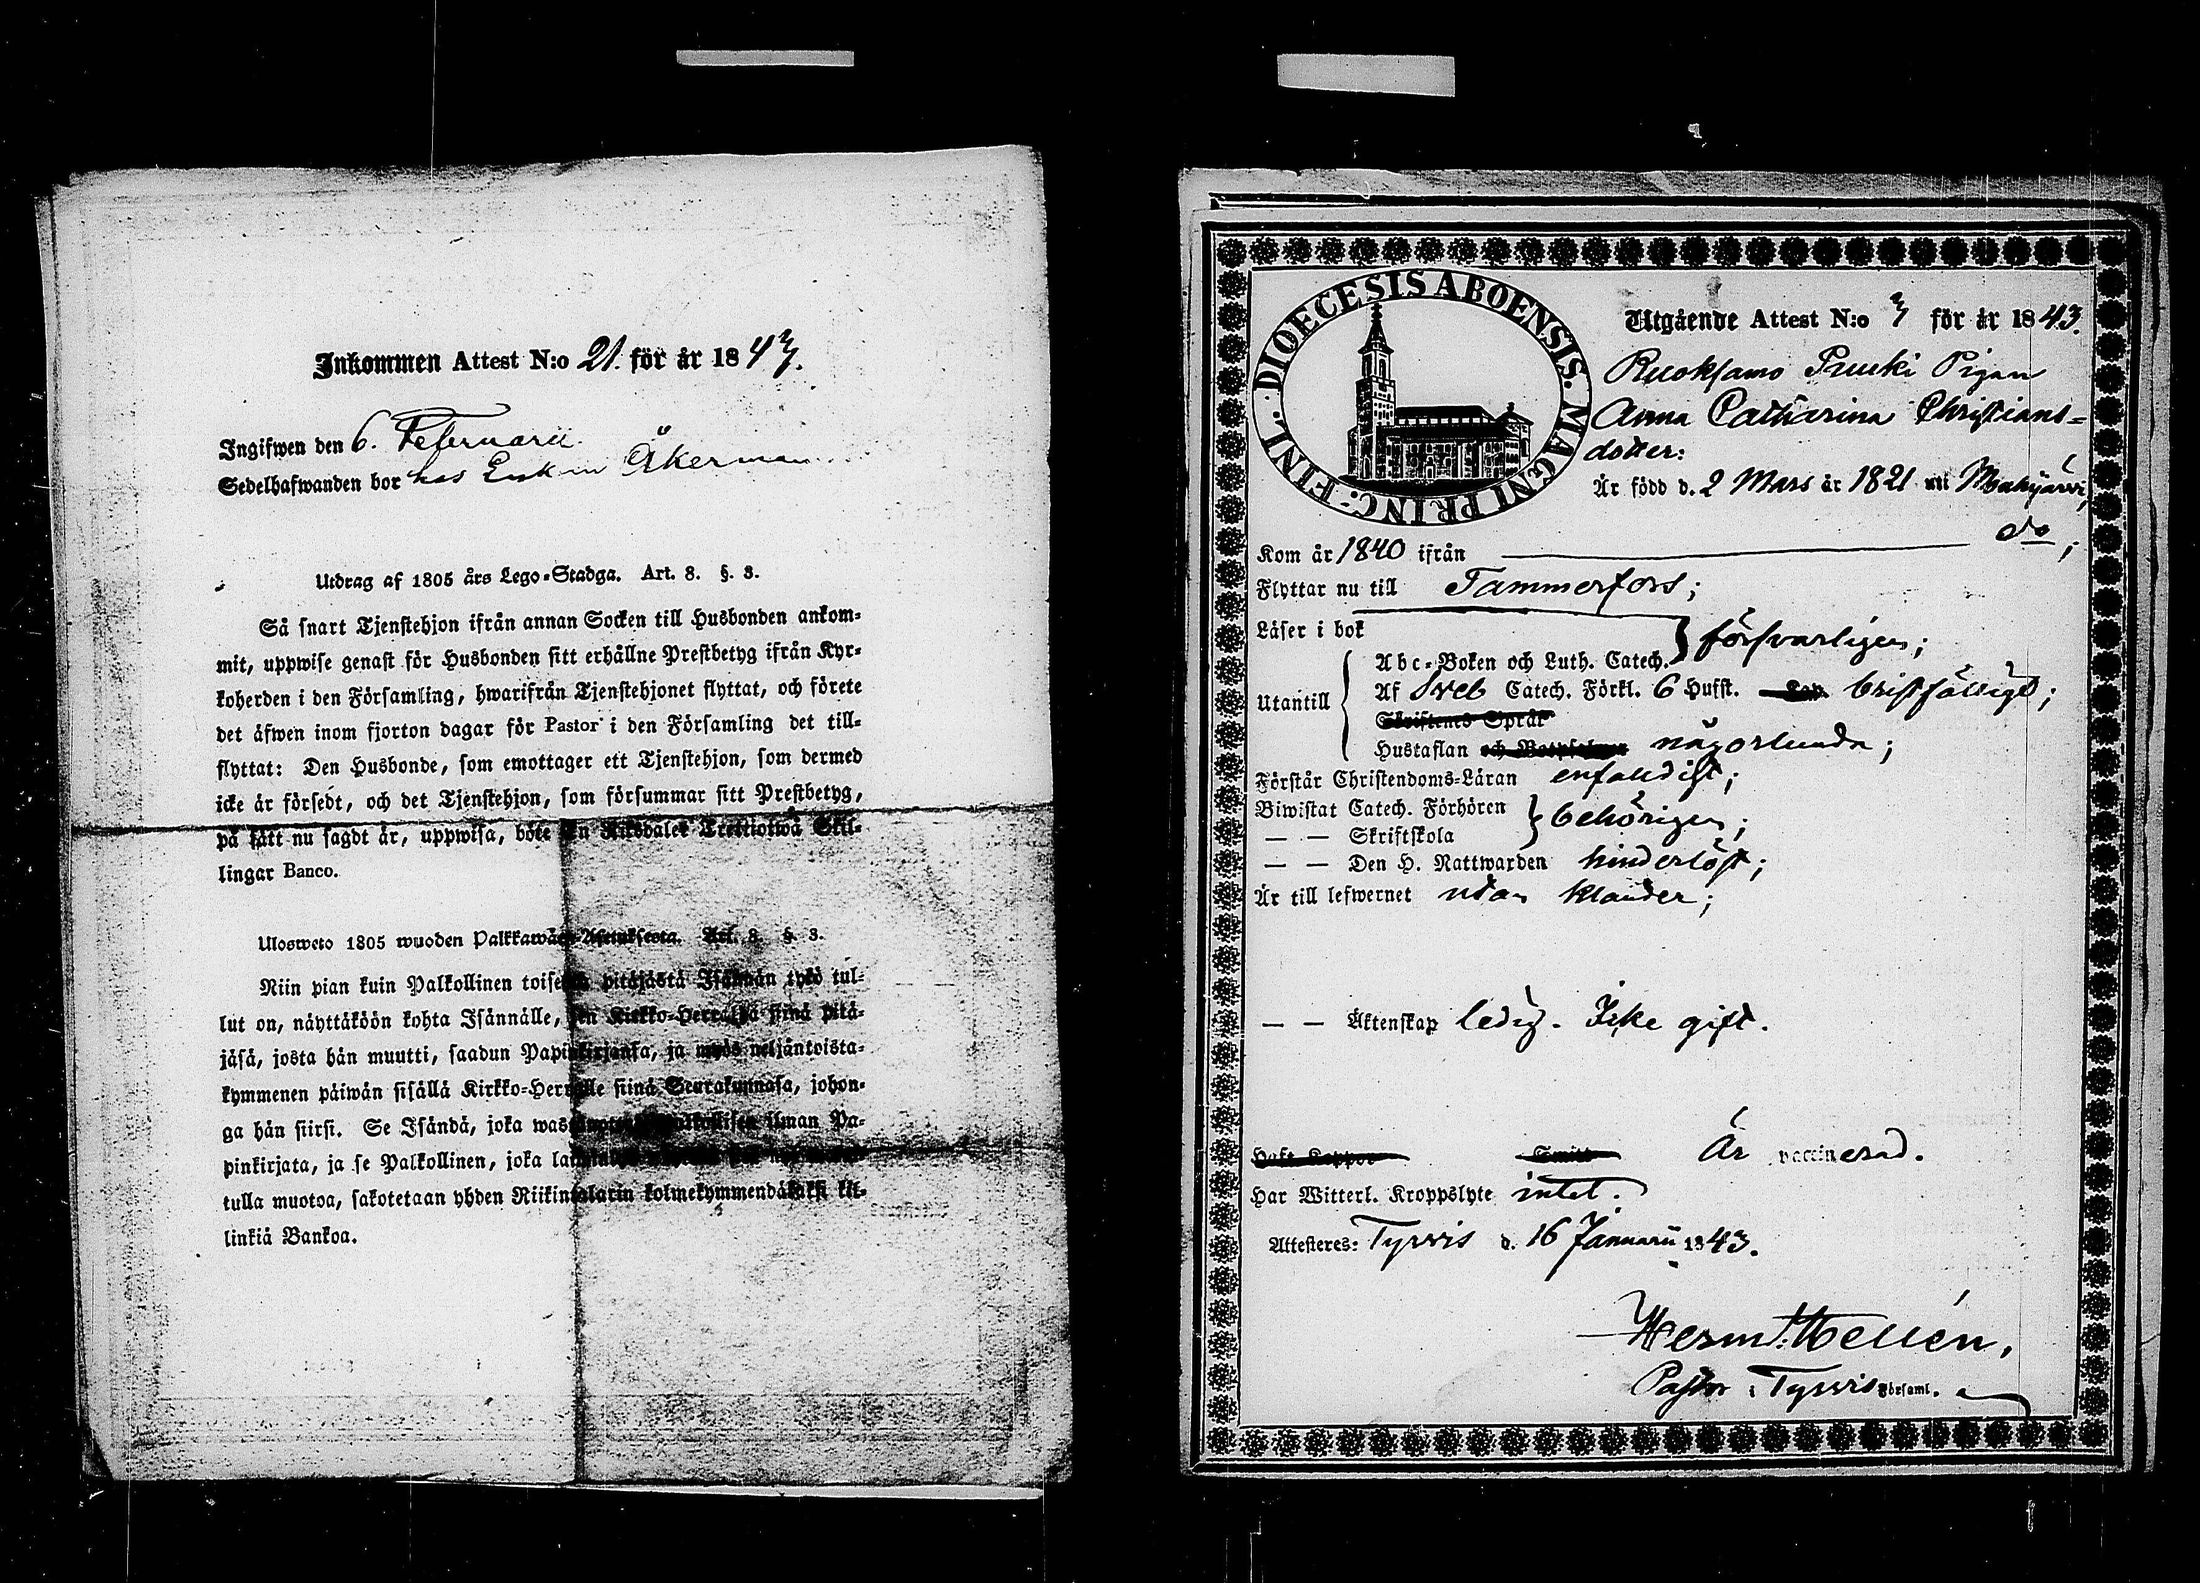 Inkommen Attest N:o 21. för år 1843.
Ingifwen den 6. Februarii.
Sedelhafwanden bor hos Enkan Åkerman
Utdrag af 1805 års Lego-Stadga. Art. 8. §. 3.
Så snart Tjenstehjon ifrån annan Socken till Husbonden ankom-
mit, uppwise genast för Husbonden sitt erhållne Prestbetyg ifrån Kyr-
koherden i den Församling, hwarifrån Tjenstehjonet flyttat, och förete
det äfwen inom fjorton dagar för Pastor i den Församling det till-
flyttat: Den Husbonde, som emottager ett Tjenstehjon, som dermed
icke är försedt, och det Tjenstehjon, som försummar sitt Prestbetyg,
på sätt nu sagdt är, uppwisa, böte En Riksdaler Trettiotwå Skil-
lingar Banco.
Ulosweto 1805 wuoden Palkkawäen-Asetuksesta. Art. 8. §. 3.
Niin pian kuin Palkollinen toisesta pitäjästä Isännän tykö tul-
lut on, näyttäköön kohta Isännälle, sen Kirkko-Herralta siinä pitä-
jäsä, josta hän muutti, saadun Papinkirjansa, ja myös neljäntoista-
kymmenen päiwän sisällä Kirkko-Herralle siinä Seurakunnasa, johon-
ga hän siirsi. Se Isändä, joka wastanottaa Palkollisen ilman Pa-
pinkirjata, ja se Palkollinen, joka
tulla muotoa, sakotetaan yhden Riikintalarin kolmekymmendäkaksi kil-
linkiä Bankoa.
DIOECESIS ABOENSIS. MAGNI PRINC: FINL.
Utgående Attest N:o 3 för år 1843.
Ruoksamo Pruuki Pigan
Anna Catharina Christians-
dotter:
Är född d. 2 Mars år 1821 uti Mouhijärvi,
Kom år 1840 ifrån do;
Flyttar nu till Tammerfors;
Läser i bok
Abc-Boken och Luth. Catech. } försvarligen;
Utantill { Af Sveb Catech. Förkl. 6 Hufst. bristfälligt;
Skriftenes Språk
Hustaflan och Botpsalmer någorlunda;
Förstår Christendoms-Läran enfaldigt;
Biwistat Catech. Förhören
— — Skriftskola } behörigen;
— — Den H. Nattwarden hinderlöst;
Är till lefwernet utan klander;
— — Äktenskap ledig. Icke gift.
Haft Koppor Smitt Är vaccinerad.
Har Witterl. Kroppslyte intet.
Attesteres: Tyrvis d. 16 Januarii 1843.
Herm: Hellén,
Pastor i Tyrvis Församl.